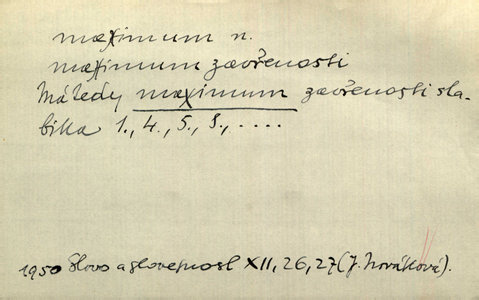 maximum n.
maximum zavřenosti
Má tedy maximum zavřenosti sla-
bika 1., 4., 5., 8., ....
1950 Slovo a slovesnost XII, 26, 27 (J. Nováková).